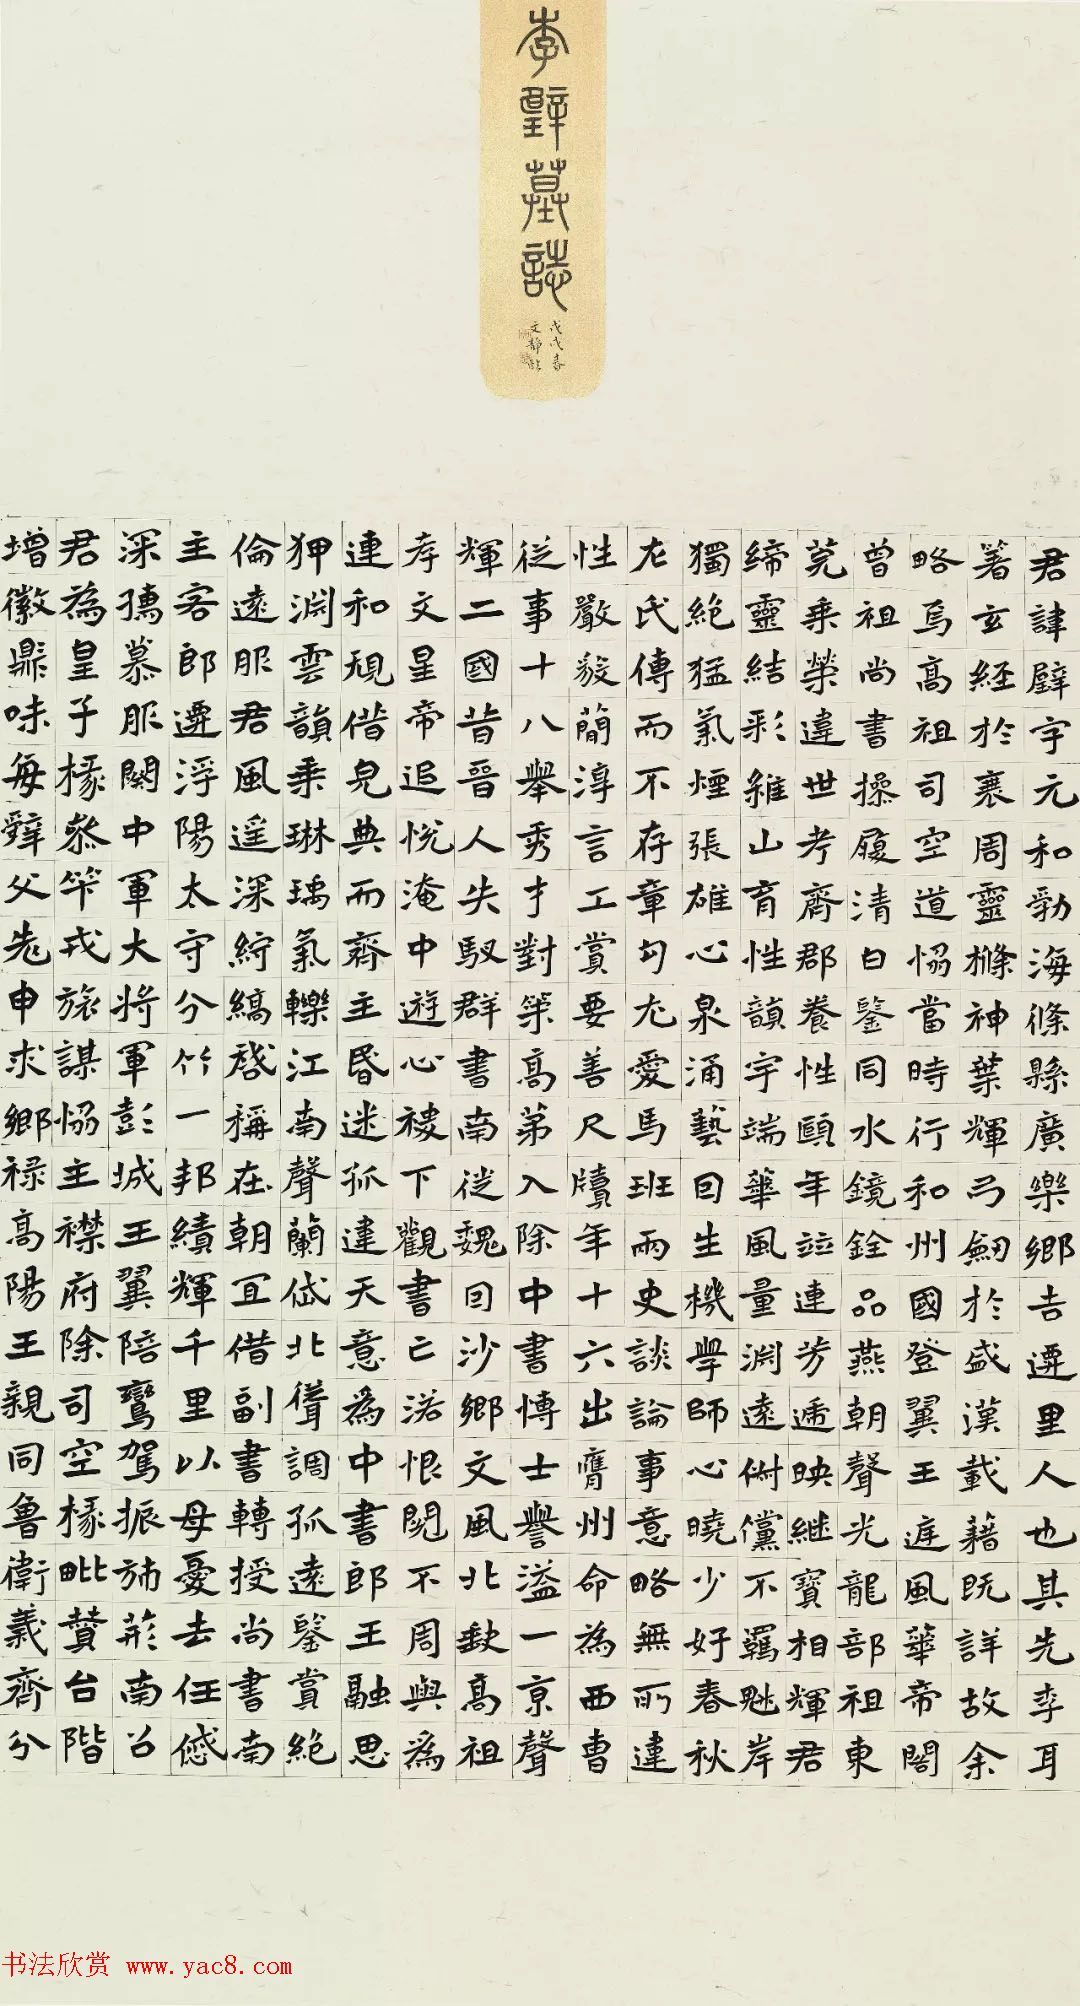 李璧墓誌
戊戌春
文靜臨
君諱璧字元和勃海條縣廣樂鄉吉遷里人也其先李耳
著玄經於衰周靈櫾神葉輝弓劒於盛漢載藉既詳故余
略焉高祖司空道恊當時行和州國登翼王廷風華帝閣
曾祖尚書操履清白鑒同水鏡銓品燕朝聲光龍部祖東
莞乘榮違世考齊郡養性頤年竝連芳遞映継寶相輝君
締靈結彩維山育性韻宇端華風量淵遠俶儻不羈魁岸
獨絕猛氣煙張雄心泉涌藝回生機學師心曉少好春秋
左氏傳而不存章句尤愛馬班兩史談論事意略無所違
性嚴毅蕳淳言工賞要善尺牘年十六出膺州命為西曹
從事十八舉秀才對策高第入除中書博士譽溢一京聲
輝二國昔晉人失馭群書南徙魏因沙鄉文風北缺高祖
孝文皇帝追悅淹中遊心稷下觀書亡落恨閱不周與為
連和規借完典而齊主昏迷孤違天意為中書郎王融思
狎淵雲韻乘琳瑀氣轢江南聲蘭岱北聳調孤遠鑒賞絕
倫遠服君風遥深紵縞啓稱在朝宜借副書轉授尚書南
主客郎遷浮陽太守分竹一邦績輝千里以母憂去任感
深孺慕服闋中軍大將軍彭城王翼陪鸞駕振旆荊南召
君為皇子掾參竿戎旅謀恊主襟府除司空掾毗贊台階
增徽鼎味每辭父老申求鄉禄高陽王親同魯衛義齊分
书法欣赏 www.yac8.com